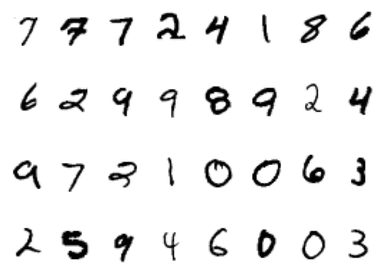 7 7 7 2 4 1 8 6
6 2 9 9 8 9 2 4
9 7 2 1 0 0 6 3
2 5 9 4 6 0 0 3